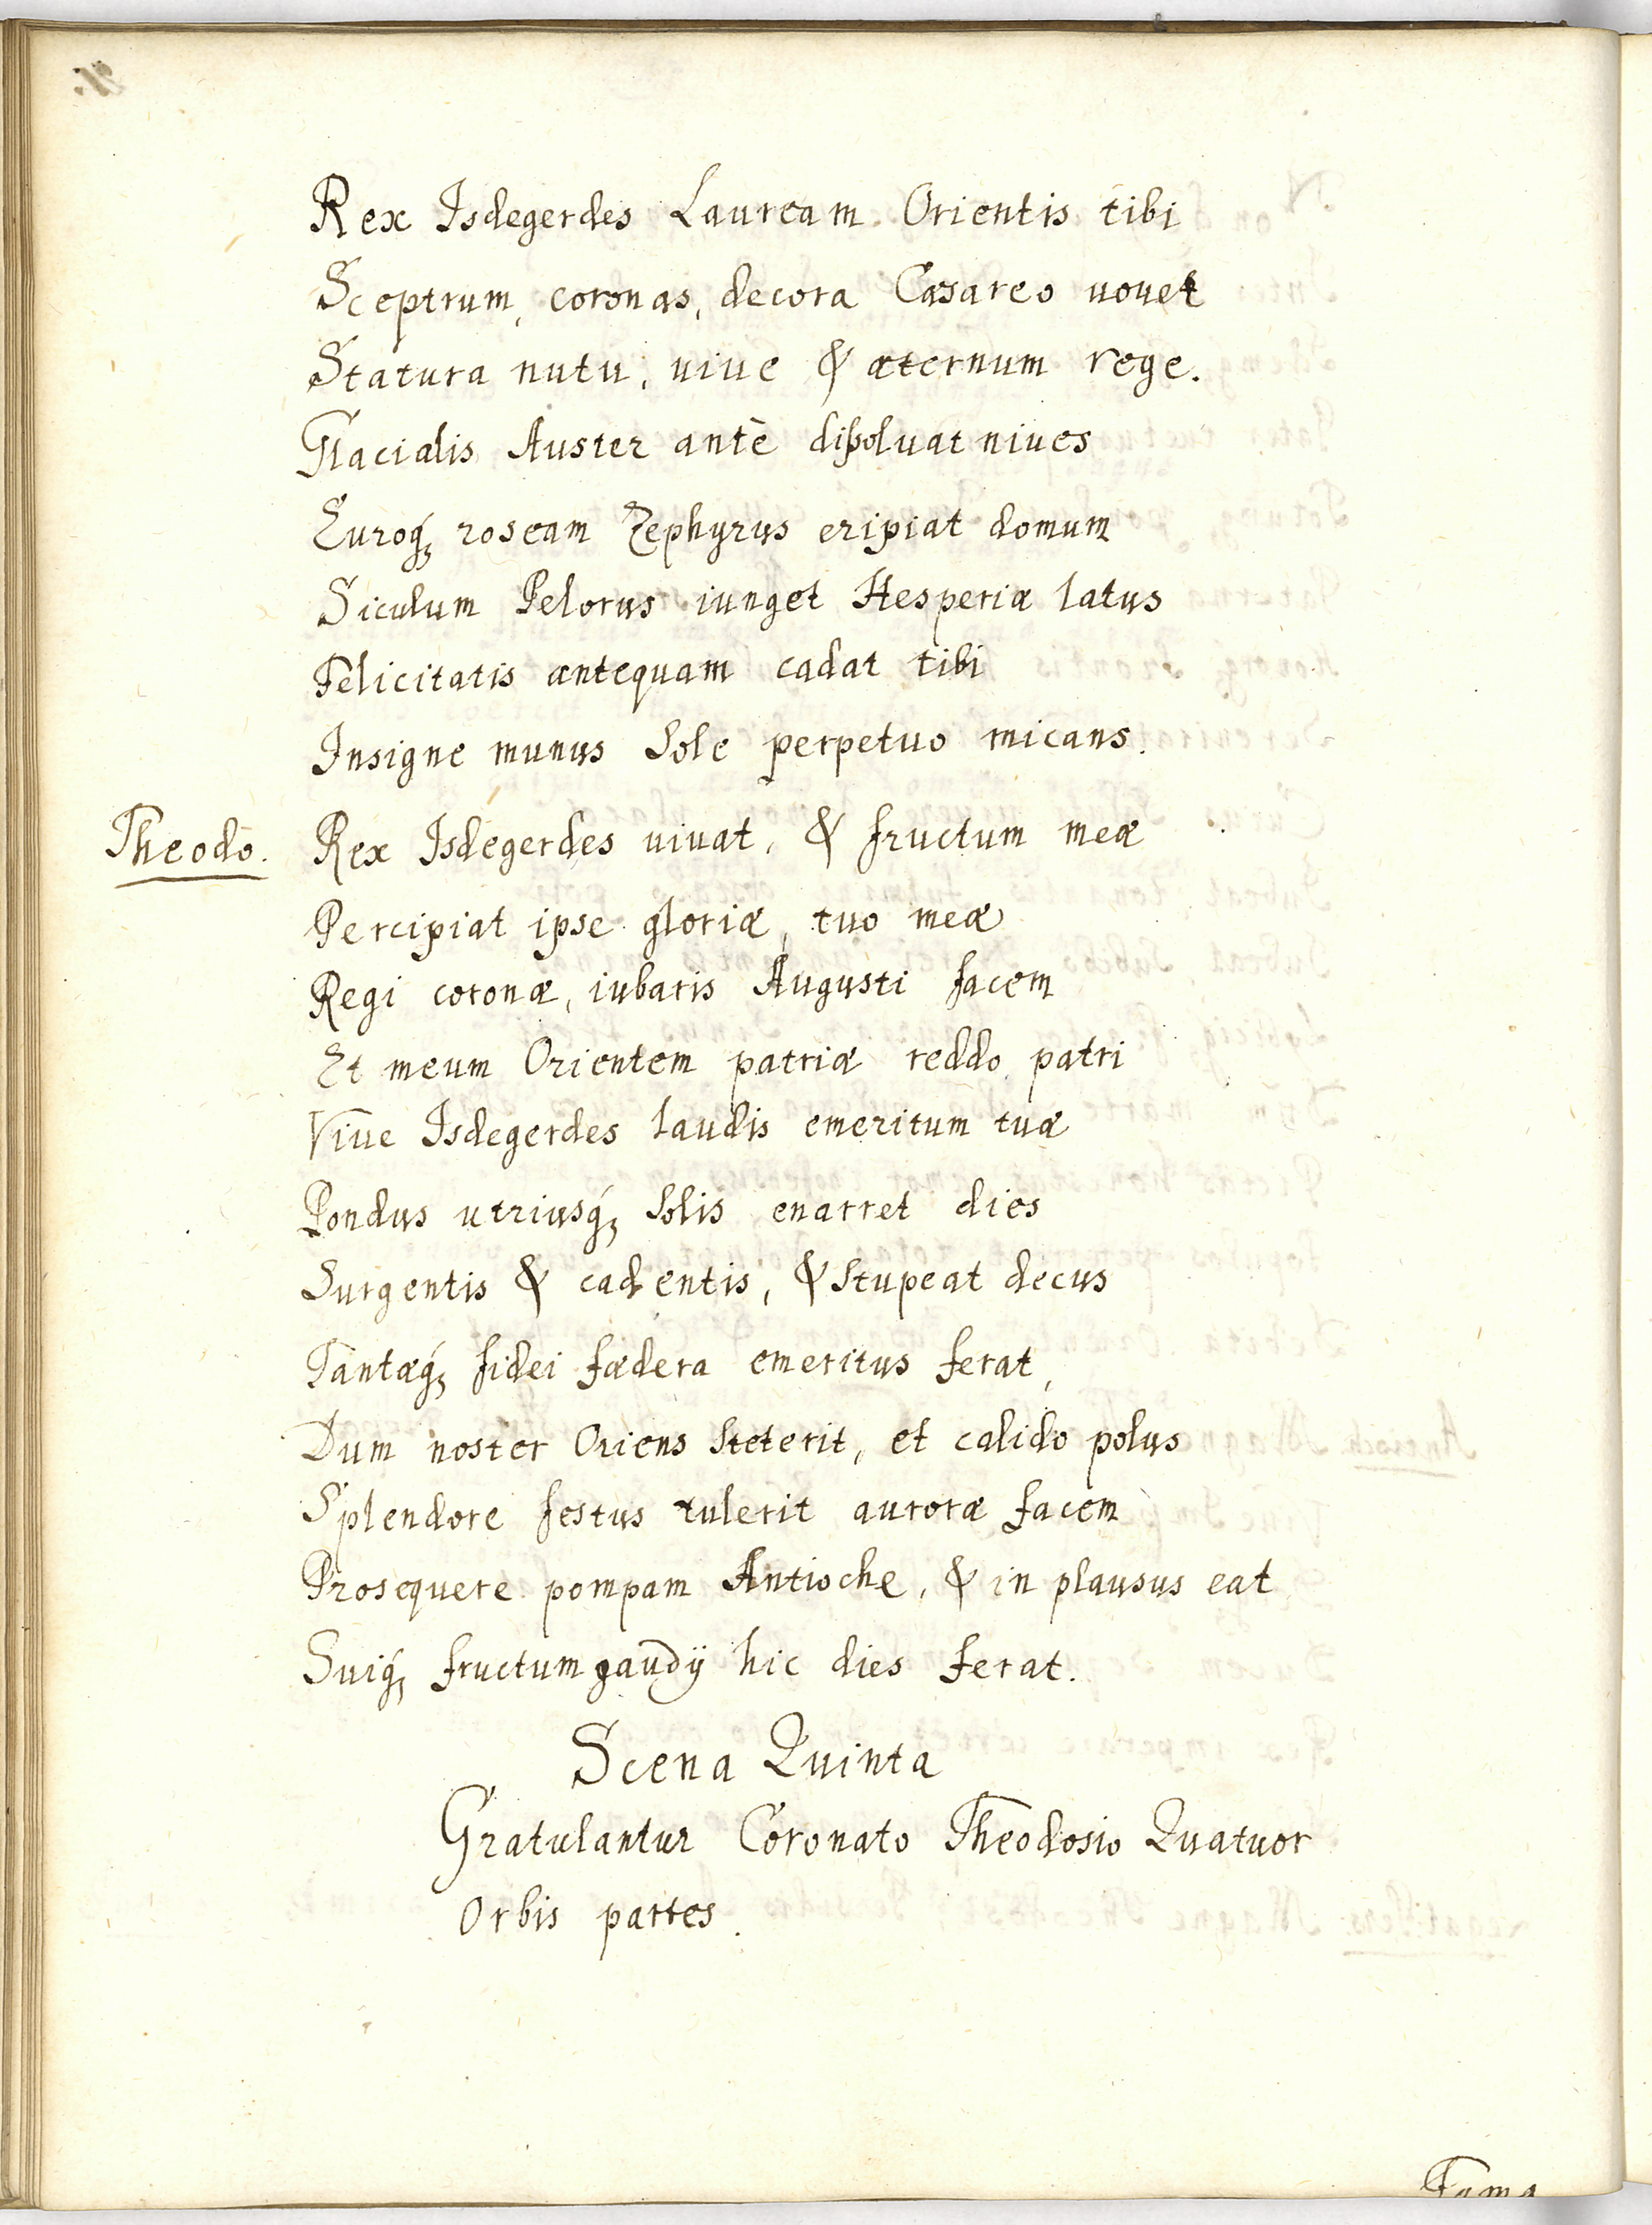 Rex Isdegerdes Lauream Orientis tibi
Sceptrum, coronas, decora Cæsareo uouet
Statura nutu, uiue & æternum rege.
Glacialis Auster antè dißoluat niues
Euroq́ꝫ roseam Zephyrus eripiat domum
Siculum Pelorus iunget Hesperiæ latus
Felicitatis antequam cadat tibi
Insigne munus Sole perpetuo micans.
Theodo.
Rex Isdegerdes uiuat, & fructum meæ
Percipiat ipse gloriæ, tuo meæ
Regi coronæ, iubaris Augusti facem
Et meum Orientem patriæ reddo patri
Viue Isdegerdes laudis emeritum tuæ
Pondus utriusq́ꝫ Solis enarret dies
Surgentis & cadentis, & Stupeat decus
Tantæq́ꝫ fidei fædera emeritus ferat,
Dum noster Oriens Steterit, et calido polus
Splendore festus tulerit auroræ facem
Prosequere pompam Antioche, & in plausus eat
Suiq́ꝫ fructum gaudÿ hic dies ferat.
Scena Quinta
Gratulantur Coronato Theodosio Quatuor
Orbis partes.
Fama